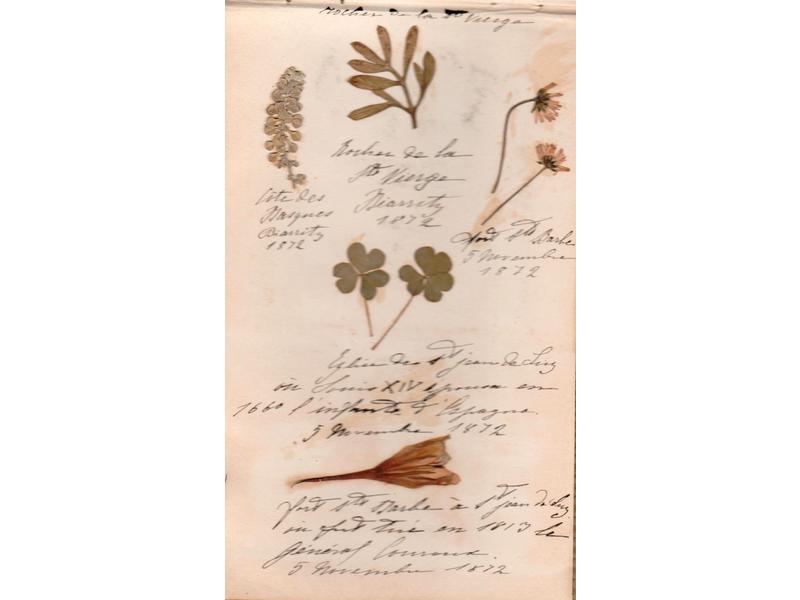 Rocher de la Ste Vierge
Rocher de la
Ste Vierge
Biarritz
1872
Côte des
Basques
Biarritz
1872
fort Ste Barbe
5 Novembre
1872
Eglise de St jean de Luz
où Louis XIV épousa en
1660 l'infante d'Espagne.
5 Novembre 1872
fort Ste Barbe à St jean de Luz
où fut tué en 1813 le
général
5 Novembre 1872